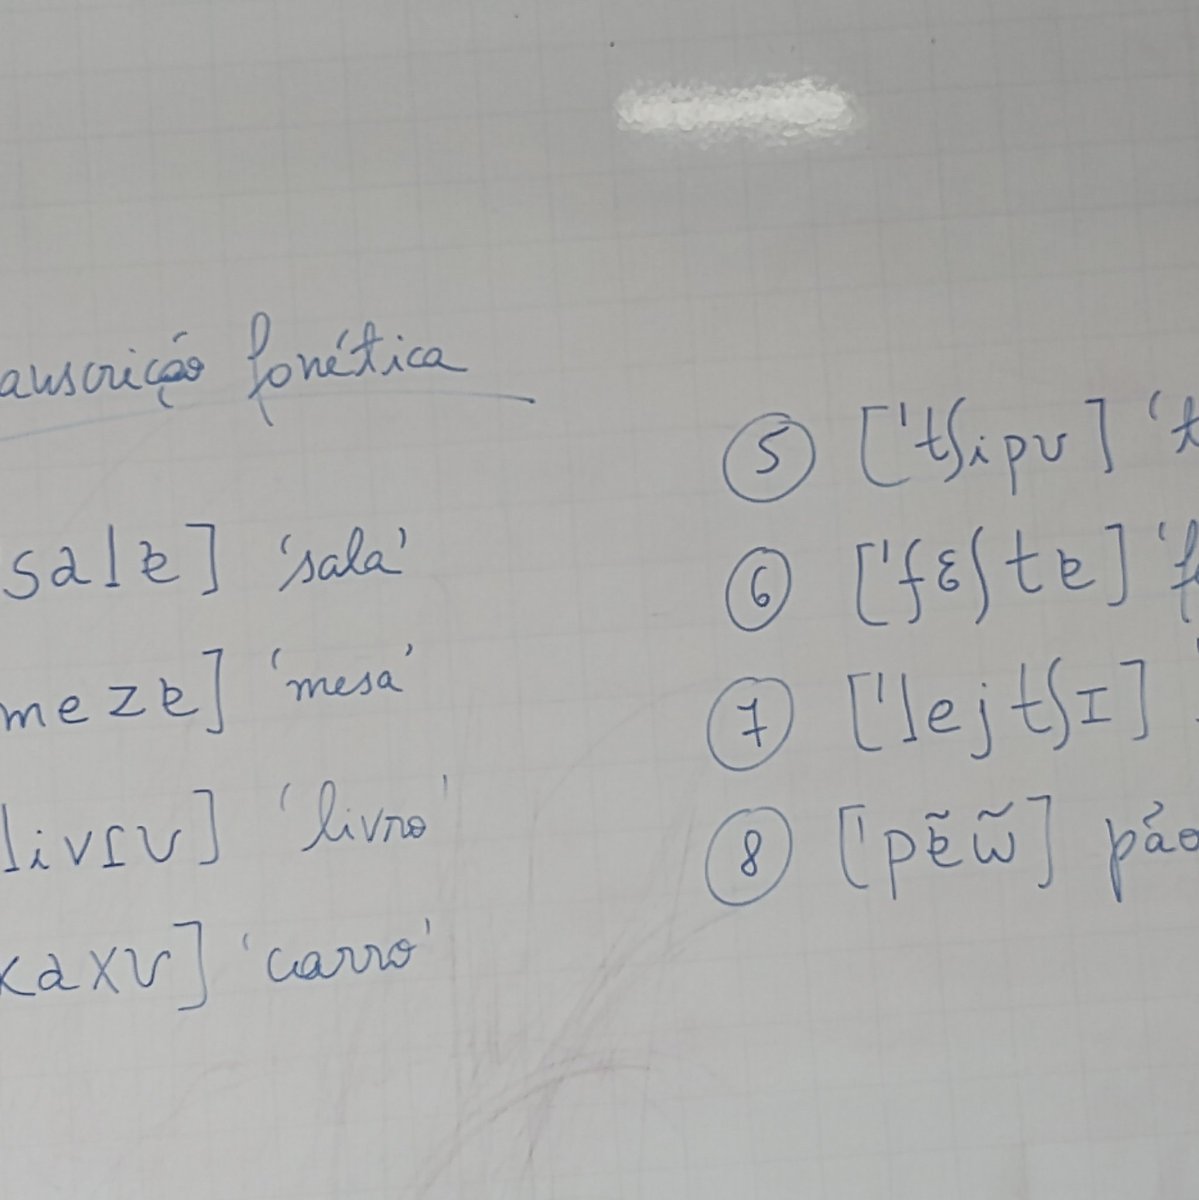 anscrição fonética
salɐ] 'sala'
mezɐ] 'mesa'
livɾʊ] 'livro'
kaxʊ] 'carro'
⑤ ['tʃipʊ] 't
⑥ ['fɛʃtɐ] 'fe
⑦ ['lejtʃɪ] '
⑧ ['pɐ̃w̃] pão